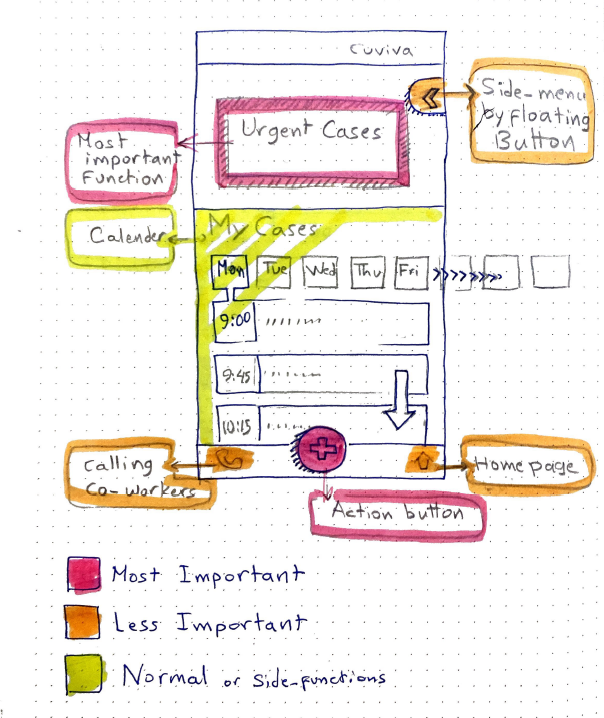 Cuviva
Side-menu
by Floating
Button
Urgent Cases
Most
important
Function
Calender
My Cases
Mon Tue Wed Thu Fri
9:00
9:45
10:15
Calling
Co-workers
Home page
Action button
Most Important
Less Important
Normal or Side-functions